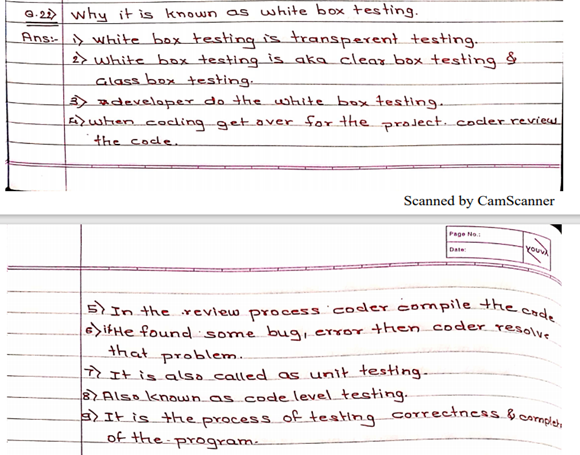 Q.22) Why it is known as white box testing.
Ans:- 1) White box testing is transperent testing.
2) White box testing is aka clear box testing &
Glass box testing.
3) developer do the white box testing.
4) when coding get over for the project. coder review
the code.
Scanned by CamScanner
Page No.:
Date:
YOUVA
5) In the review process coder compile the code
6) if He found some bug, error then coder resolve
that problem.
7) It is also called as unit testing.
8) Also known as code level testing.
9) It is the process of testing correctness &
of the program.